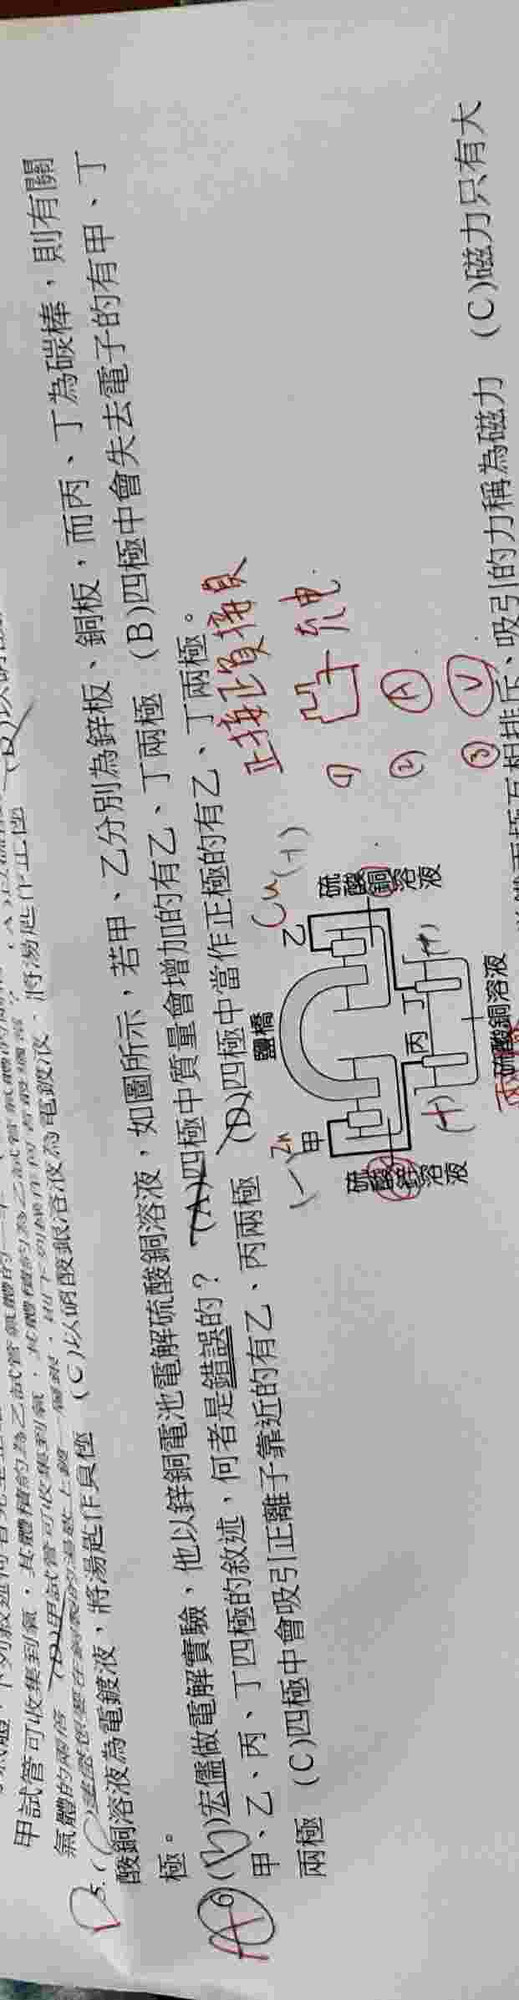 甲試管可收集到氣，其體積約為乙試管氣體的
氣體的兩倍 (D)甲試管可收集到氣，其體積約為乙試管
5.( )
酸銅溶液為電鍍液，將湯匙作負極 (C)以硝酸銀溶液為電鍍液、將湯匙作正極
極。
A 6 (D)宏儒做電解實驗，他以鋅銅電池電解硫酸銅溶液，如圖所示，若甲、乙分別為鋅板、銅板，而丙、丁為碳棒，則有關
甲、乙、丙、丁四極的敘述，何者是錯誤的？ (A)四極中質量會增加的有乙、丁兩極 (B)四極中會失去電子的有甲、丁
兩極 (C)四極中會吸引正離子靠近的有乙、丙兩極 (D)四極中當作正極的有乙、丁兩極。
正接正負接負
(-) Zn
甲
鹽橋
乙
Cu(+)
硫酸鋅溶液
硫酸銅溶液
丙
丁
(+)
(+)
硫酸銅溶液
(1) 充电
(2) A
(3) V
互相排斥、吸引的力稱為磁力 (C)磁力只有大